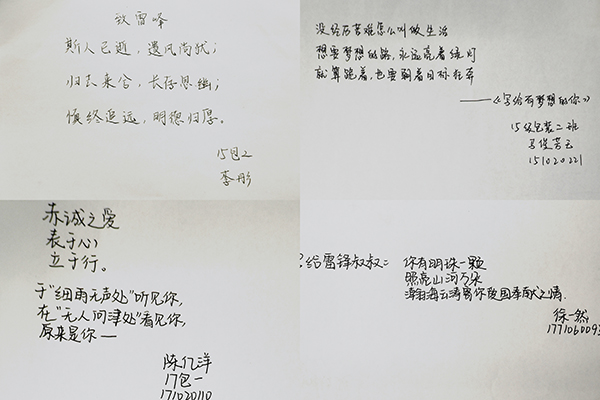 致雷峰
斯人已逝，遗风尚犹；
归去来兮，长存思幽；
慎终追远，明德归厚。
15包2
李彤
没经历苦难怎么叫做生活
想要梦想的路，永远亮着绿灯
就算跪着，也要朝着目标狂奔
——《写给有梦想的你》
15级包装二班
马俊芳云
151020221
赤诚之爱
表于心
立于行。
于“细雨无声处”听见你，
在“无人问津处”看见你，
原来是你——
陈亿洋
17包一
171020110
给雷锋叔叔：
你有明珠一颗
照亮山河万朵
瀚海云涛寄你报国奉献之情.
徐一然
177106009